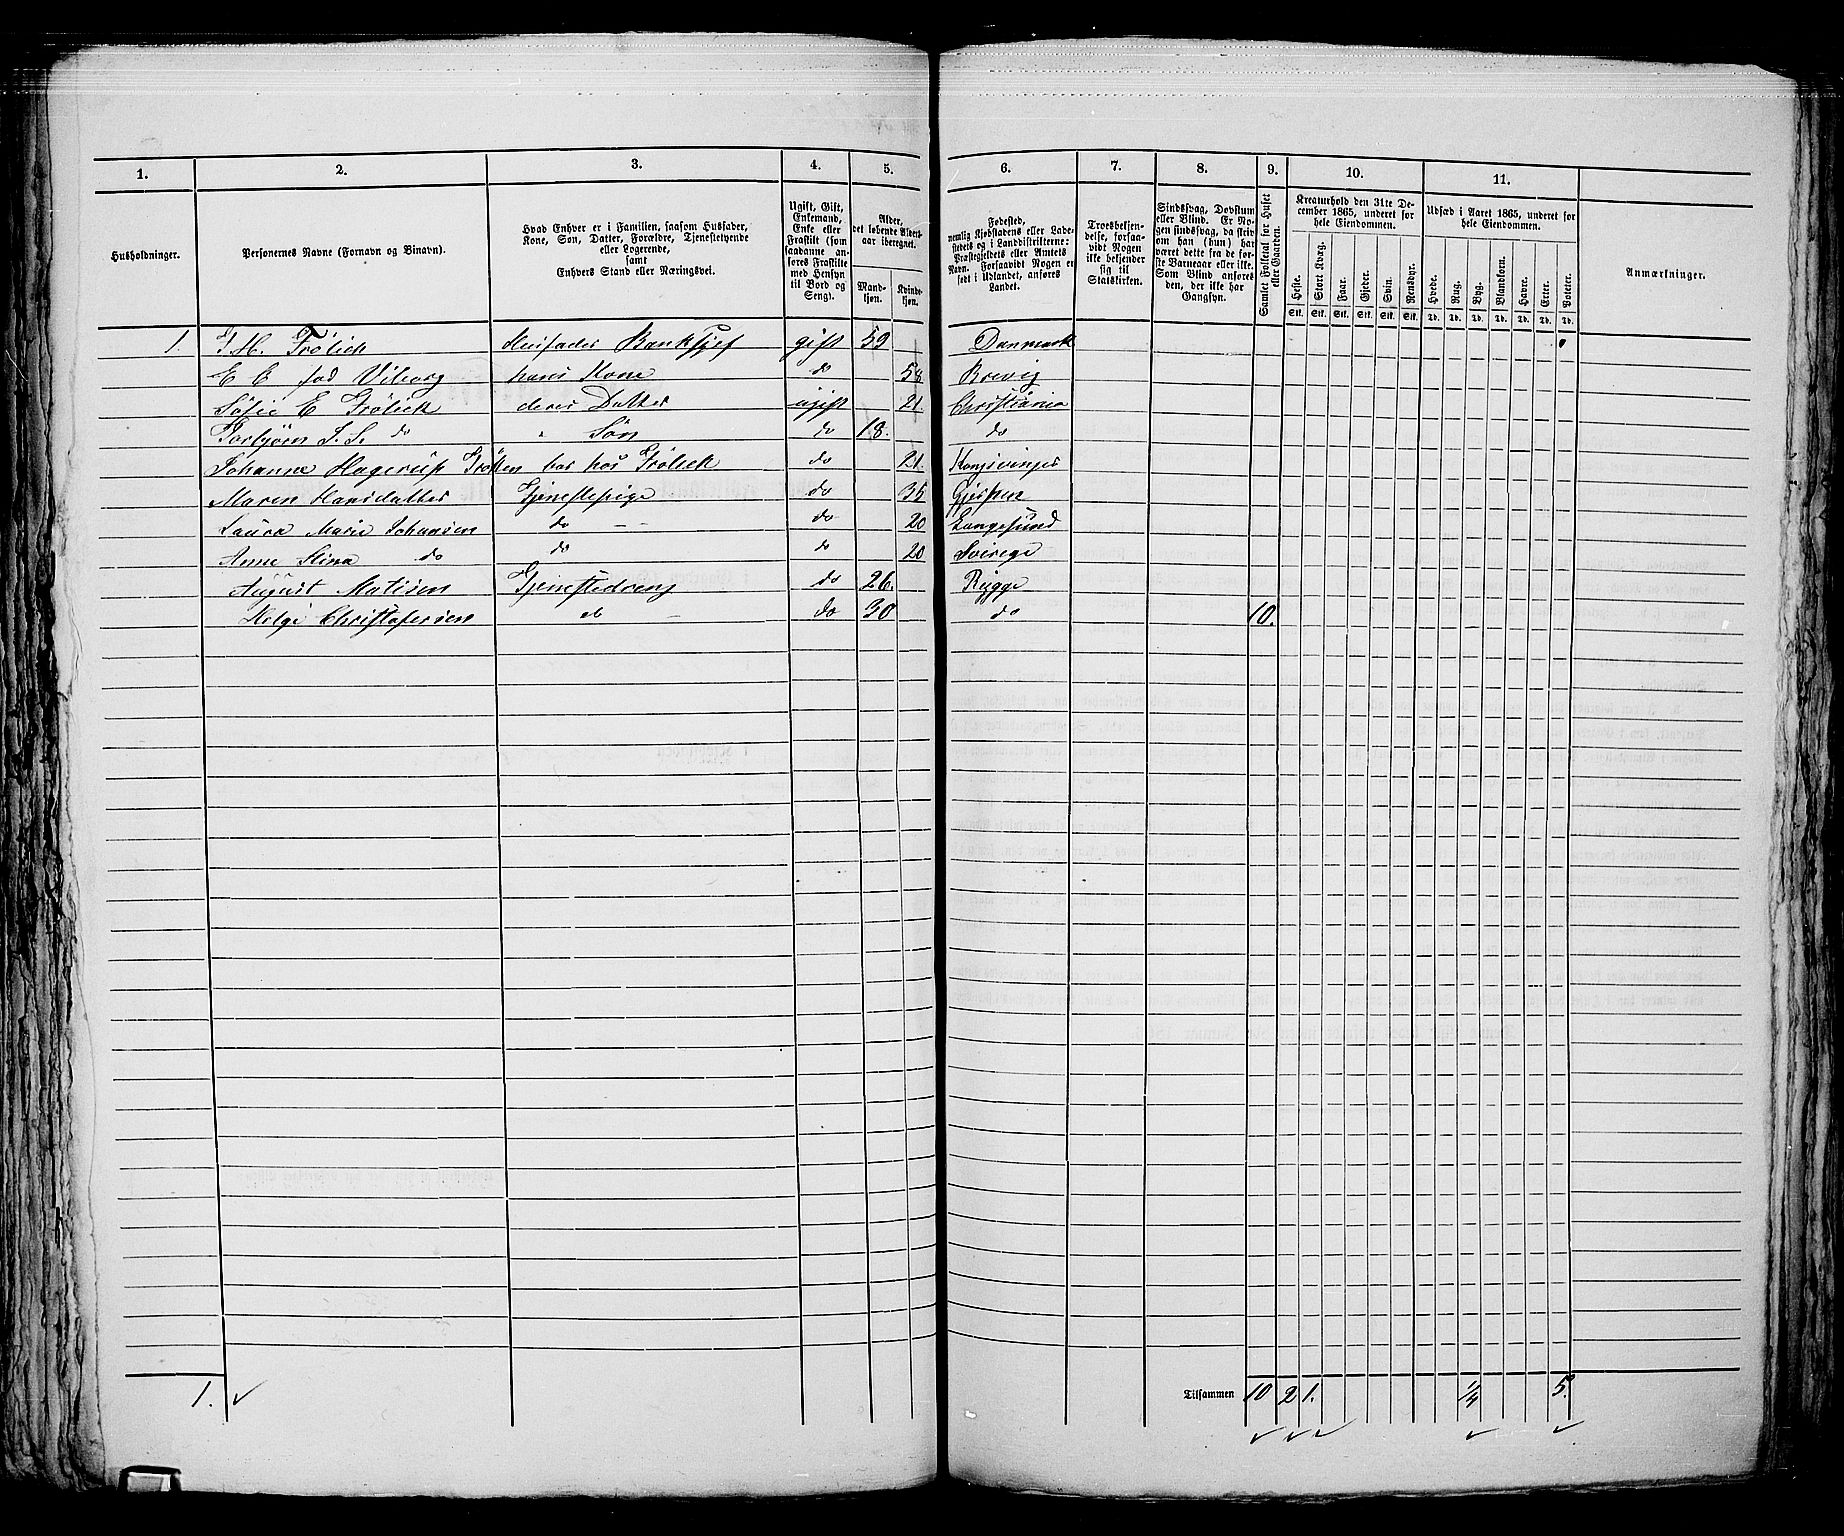 1. 2. 3. 4. 5. 6. 7. 8. 9. 10. 11.
Husholdninger.
Personernes Navne (Fornavn og Binavn).
Hvad Enhver er i Familien, saasom Husfader,
Kone, Søn, Datter, Forældre, Tjenestetyende
eller Logerende,
samt
Enhvers Stand eller Næringsvei.
Ugift, Gift,
Enkemand,
Enke eller
Fraskilt (som
saadanne an-
føres Fraskilte
med Hensyn
til Bord og
Seng).
Alder,
det løbende Alders-
aar iberegnet.
Mand-
kjøn.
Kvinde-
kjøn.
Fødested,
nemlig Kjøbstadens eller Lade-
stedets og i Landdistrikterne:
Præstegjeldets eller Annexets
Navn. Forsaavidt Nogen er
født i Udlandet, anføres
Landet.
Troesbekjen-
delse, forsaa-
vidt Nogen
ikke bekjender
sig til
Statskirken.
Sindssvag, Døvstum
eller Blind. Er No-
gen sindssvag, da skriv
om han (hun) har
været dette fra de før-
ste Barneaar eller ikke.
Som Blind anføres
den, der ikke har
Gangsyn.
Samlet Folketal for Huset
eller Gaarden.
Kreaturhold den 31te De-
cember 1865, underet for
hele Eiendommen.
Heste. Stort Kvæg. Faar. Gjeder. Svin. Rensdyr.
Stk. Stk. Stk. Stk. Stk. Stk.
Udsæd i Aaret 1865, underet for
hele Eiendommen.
Hvede. Rug. Byg. Blandkorn. Havre. Erter. Poteter.
Td. Td. Td. Td. Td. Td. Td.
Anmærkninger.
1. J. H. Frölich Husfader Banksjef gift 59 Danmark
E E fød Viborg hans Kone do 58 Brevig
Sofie E Frölich deres Datter ugift 21. Christiania
Torbjørn S. S. do " Søn do 18. do
Johanne Hagerup Frölich bor hos Frölich do 21. Kongsvinger
Maren Hansdatter Tjenestepige do 35 Gjerpen
Laura Marie Johansen do do 20 Langesund
Anne Stina do do do 20 Sverige
August Matisen Tjenestedreng do 26. Rygge
Helge Christofersen do do 30 do 10.
1. Tilsammen 10 2 1. 1/4 5.